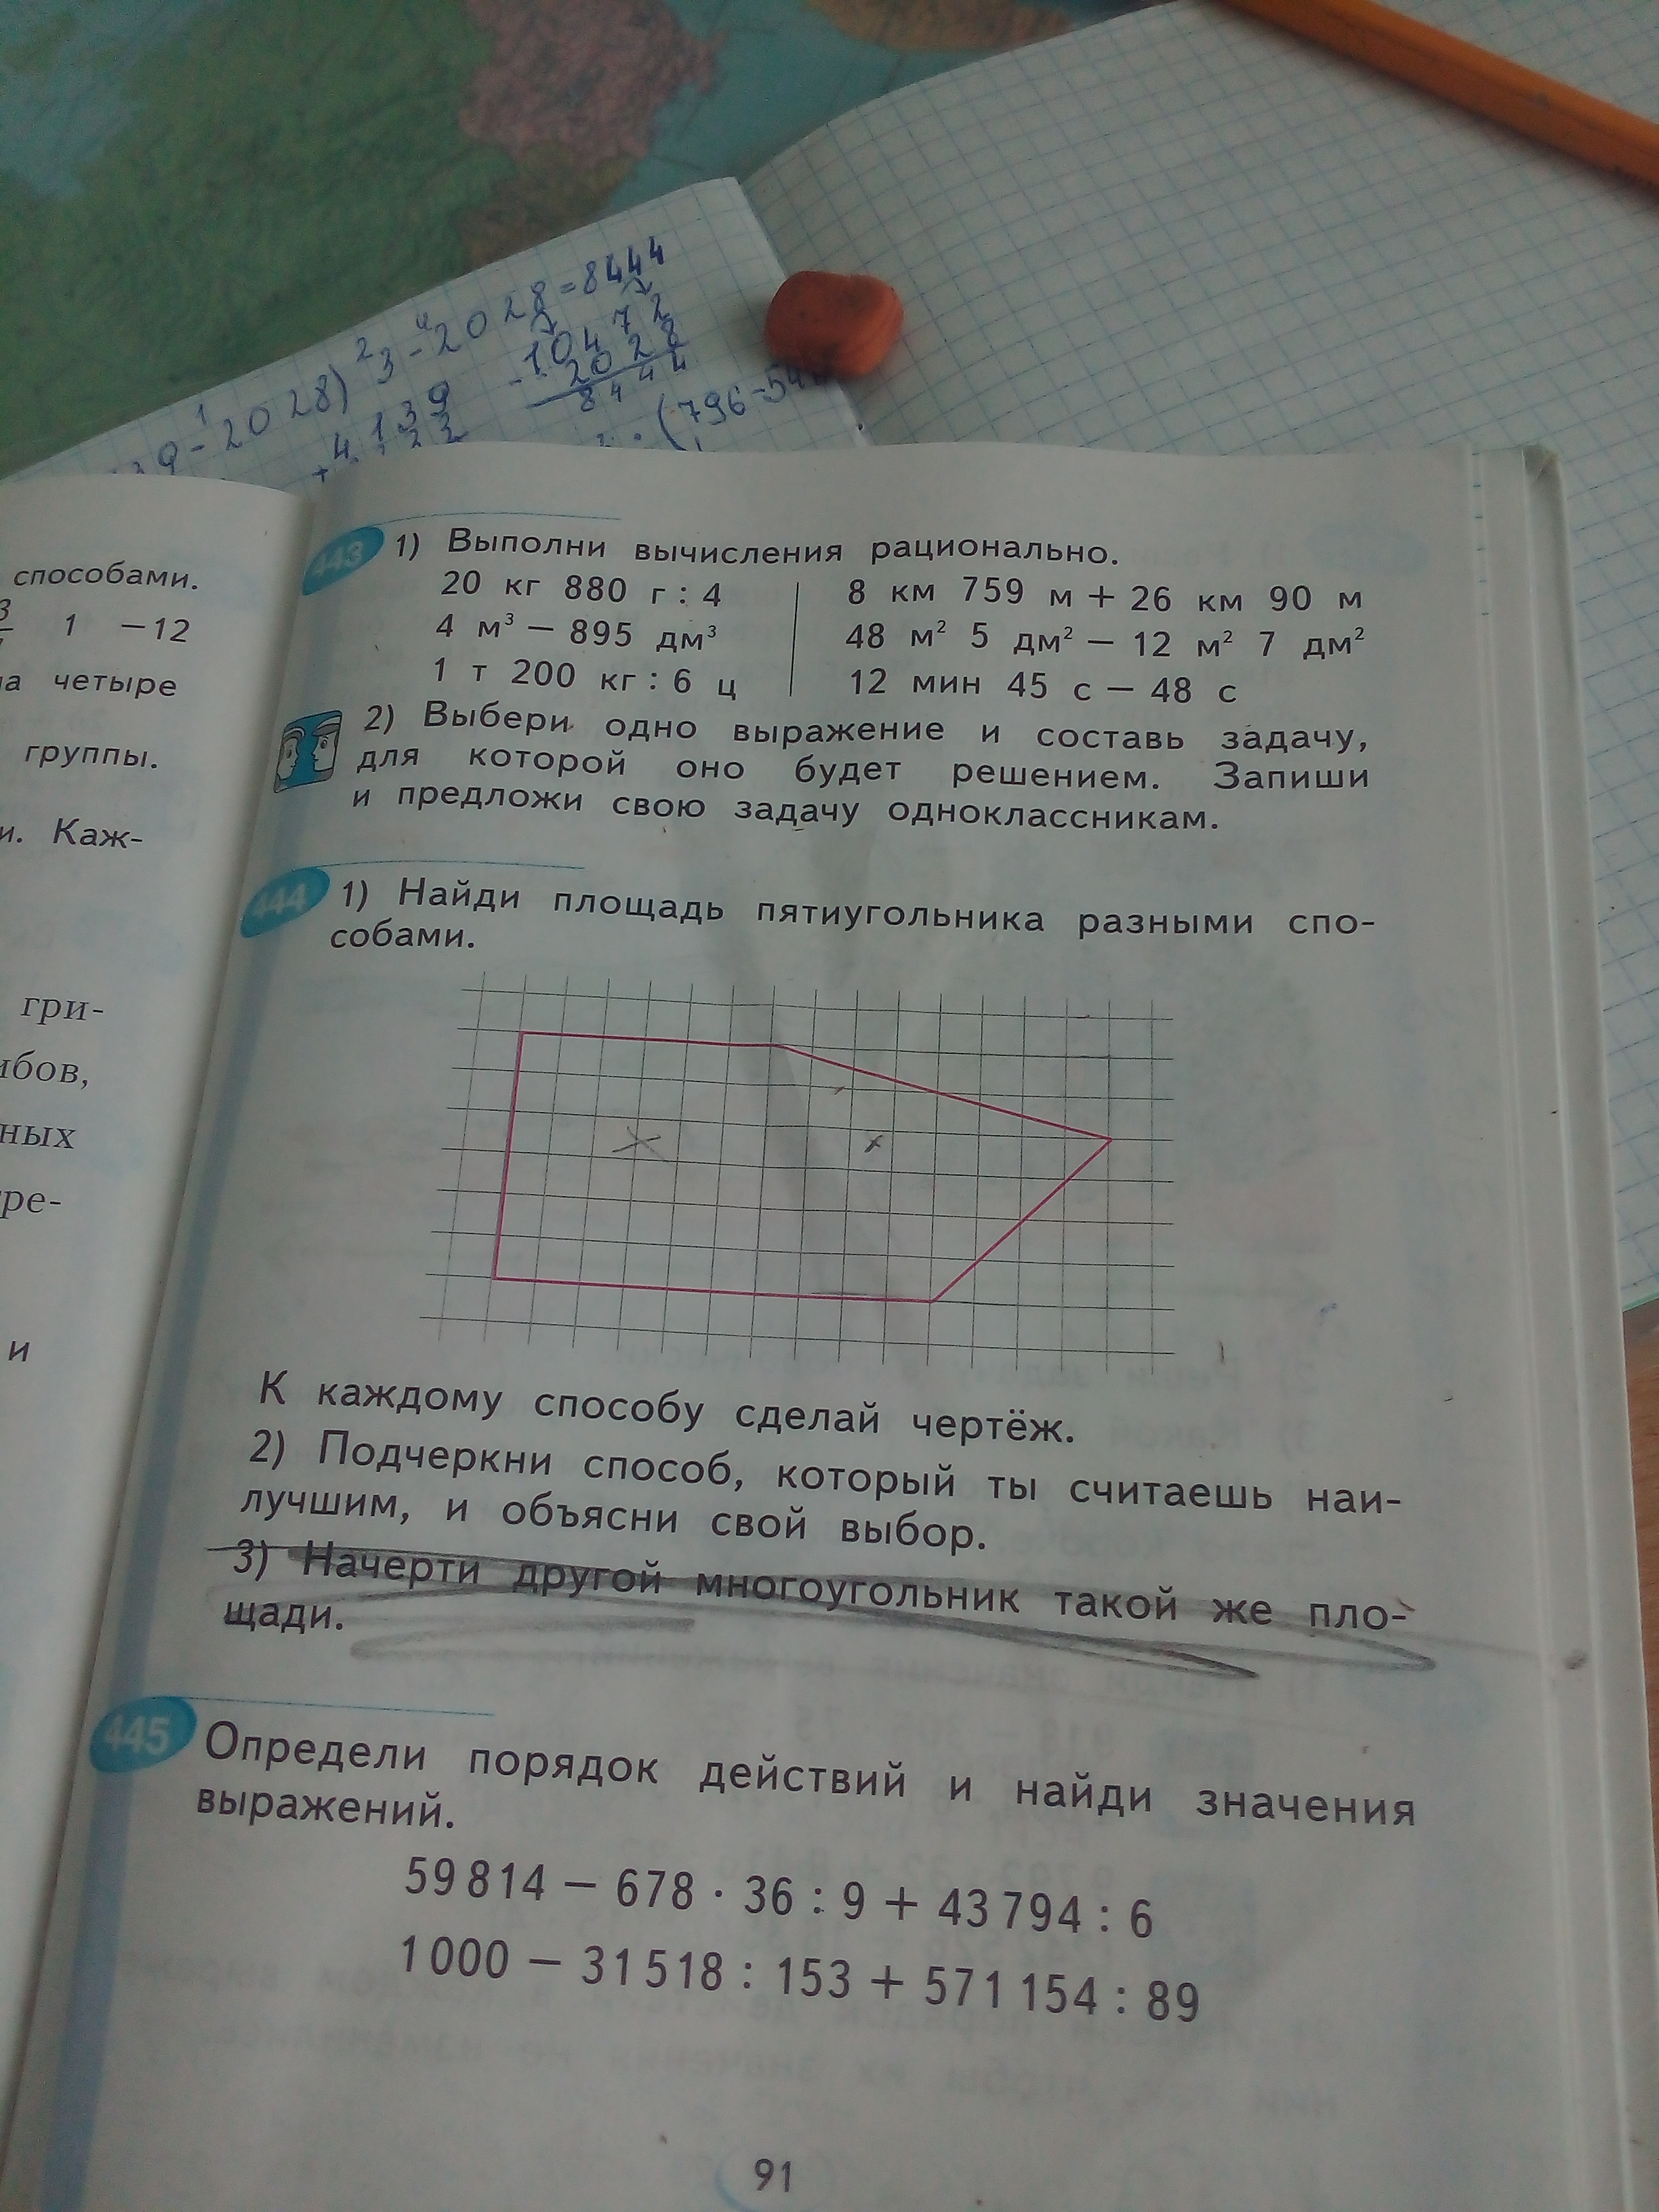 -2028) 3-2028=8444
10472
2028
8444
4139
(796-54
способами.
3
1 −12
четыре
группы.
и. Каж-
гри-
ибов,
ных
и
443 1) Выполни вычисления рационально.
20 кг 880 г : 4 8 км 759 м + 26 км 90 м
4 м³ − 895 дм³ 48 м² 5 дм² − 12 м² 7 дм²
1 т 200 кг : 6 ц 12 мин 45 с − 48 с
2) Выбери одно выражение и составь задачу,
для которой оно будет решением. Запиши
и предложи свою задачу одноклассникам.
444 1) Найди площадь пятиугольника разными спо-
собами.
К каждому способу сделай чертёж.
2) Подчеркни способ, который ты считаешь наи-
лучшим, и объясни свой выбор.
3) Начерти другой многоугольник такой же пло-
щади.
445 Определи порядок действий и найди значения
выражений.
59 814 − 678 · 36 : 9 + 43 794 : 6
1 000 − 31 518 : 153 + 571 154 : 89
91